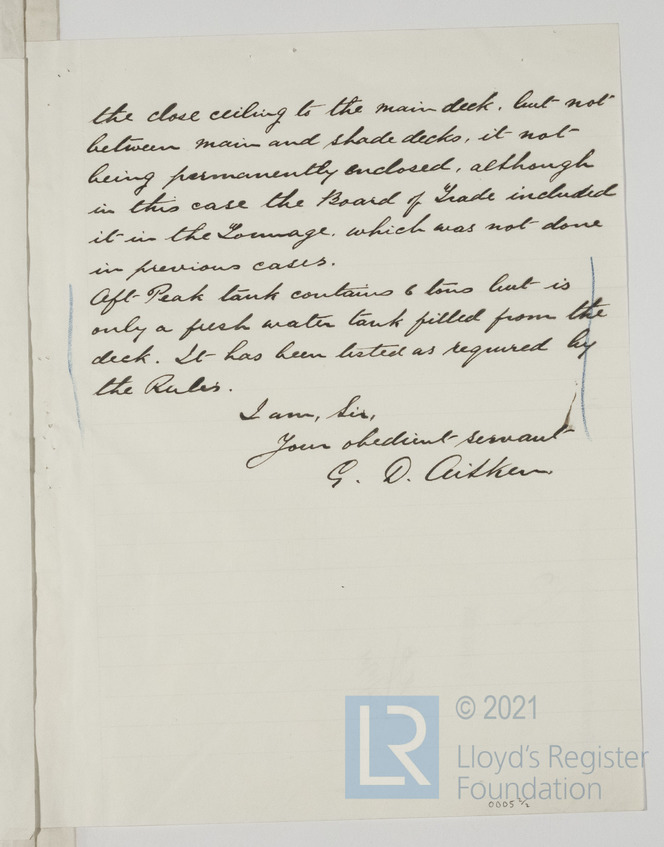 the close ceiling to the main deck, but not
between main and shade decks, it not
being permanently enclosed, although
in this case the Board of Trade included
it in the Tonnage, which was not done
in previous cases.
Aft Peak tank contains 6 tons but is
only a fresh water tank filled from the
deck. It has been tested as required by
the Rules.
I am, Sir,
Your obedient servant
G. D. Aitken.
LR
© 2021
Lloyd's Register
Foundation
0005 2/2